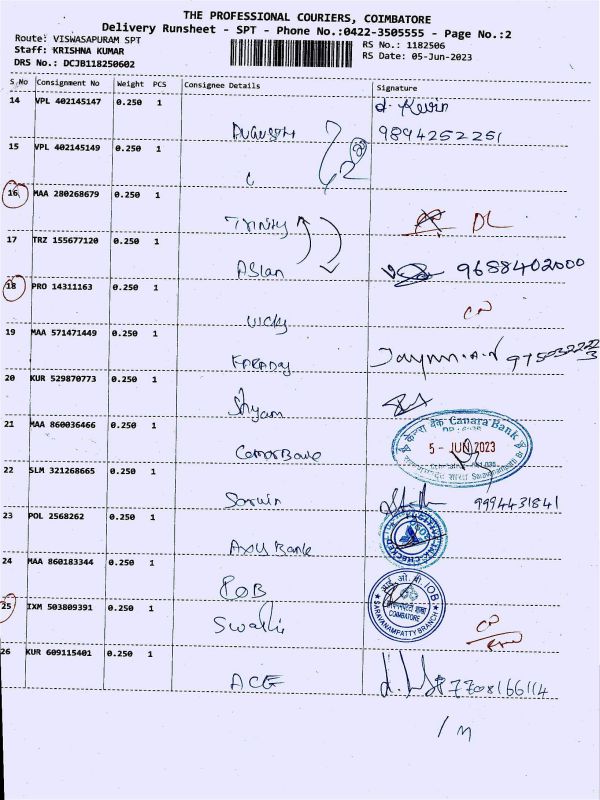 THE PROFESSIONAL COURIERS, COIMBATORE
Delivery Runsheet - SPT - Phone No.:0422-3505555 - Page No.:2
Route: VISWASAPURAM SPT
Staff: KRISHNA KUMAR
DRS No.: DCJB118250602
RS No.: 1182506
RS Date: 05-Jun-2023
S.No Consignment No Weight PCS Consignee Details Signature
14 VPL 402145147 0.250 1
d. Kevin
9894252251
15 VPL 402145149 0.250 1
16 MAA 280268679 0.250 1
Trinity DL
17 TRZ 155677120 0.250 1
Aslan 9688402000
18 PRO 14311163 0.250 1
Vicky
19 MAA 571471449 0.250 1
20 KUR 529870773 0.250 1
Shyam
21 MAA 860036466 0.250 1
Canara Bank
5 - JUN 2023
22 SLM 321268665 0.250 1
9994431841
23 POL 2568262 0.250 1
Bank
24 MAA 860183344 0.250 1
IOB
SARAVANAMPATTY BRANCH
COIMBATORE
25 IXM 503809391 0.250 1
26 KUR 609115401 0.250 1
ACE 7708166114